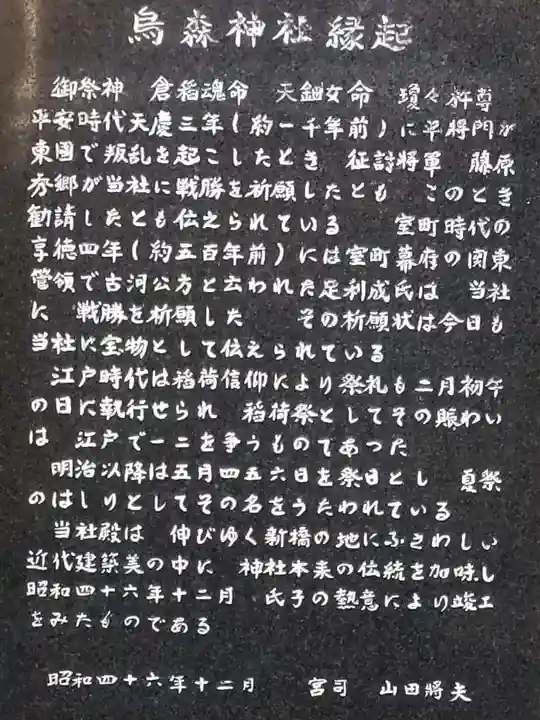 烏森神社縁起
御祭神　倉稲魂命　天鈿女命　瓊々杵尊
平安時代天慶三年(約一千年前)に平將門が
東國で叛乱を起こしたとき　征討將軍　藤原
秀郷が当社に戦勝を祈願したとも　このとき
勧請したとも伝えられている　　室町時代の
享徳四年(約五百年前)には室町幕府の関東
管領で古河公方と云われた足利成氏は　当社
に　戦勝を祈願した　　その祈願状は今日も
当社に宝物として伝えられている
江戸時代は稲荷信仰により祭礼も二月初午
の日に執行せられ　稲荷祭としてその賑わい
は　江戸で一二を争うものであった
明治以降は五月四五六日を祭日とし　夏祭
のはしりとしてその名をうたわれている
当社殿は　伸びゆく新橋の地にふさわしい
近代建築美の中に　神社本来の伝統を加味し
昭和四十六年十二月　氏子の熱意により竣工
をみたものである
昭和四十六年十二月　　宮司　山田將夫